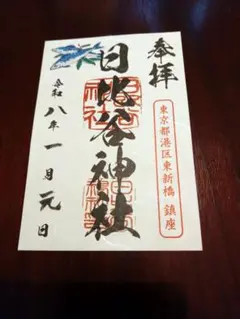 奉拝
東京都港区東新橋 鎮座
日比谷神社
令和八年一月元日